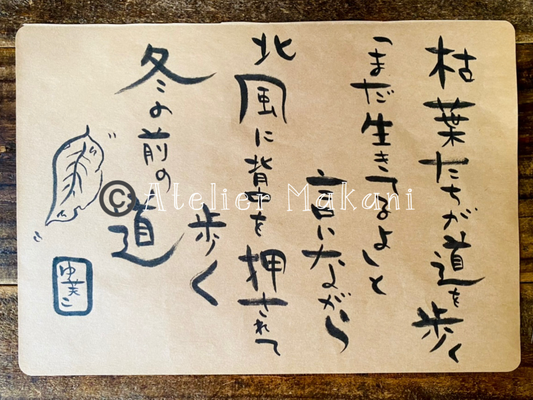 枯葉たちが道を歩く
「まだ生きてるよ」と
言いながら
北風に背中を押されて
歩く
冬の前の道
© Atelier Makani